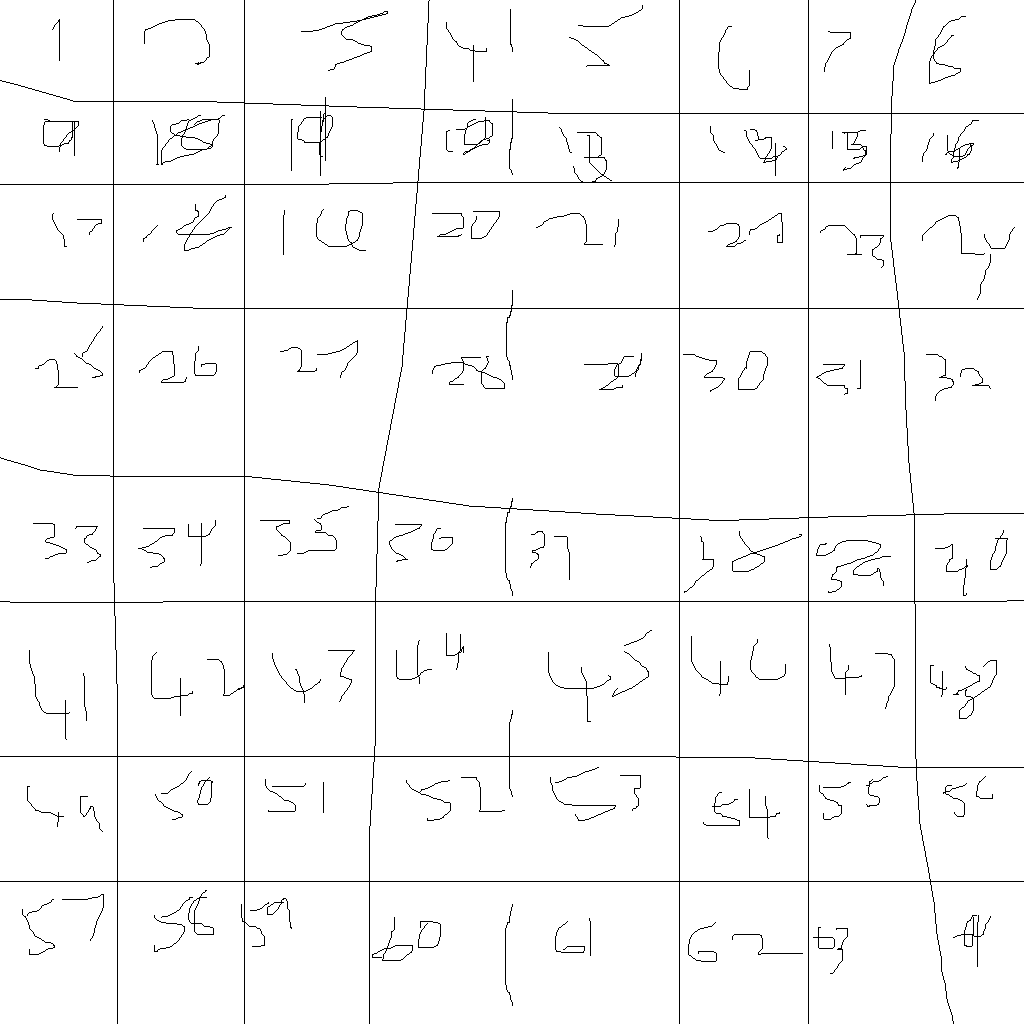 1 3 4 5 6 7
9 13 14 15 16
17 18 19 20 21 22 23 24
25 26 27 28 29 30 31 32
33 34 35 36 37 38 39 40
41 42 43 44 45 46 47 48
49 50 51 52 53 54 55 56
57 58 59 60 61 62 63